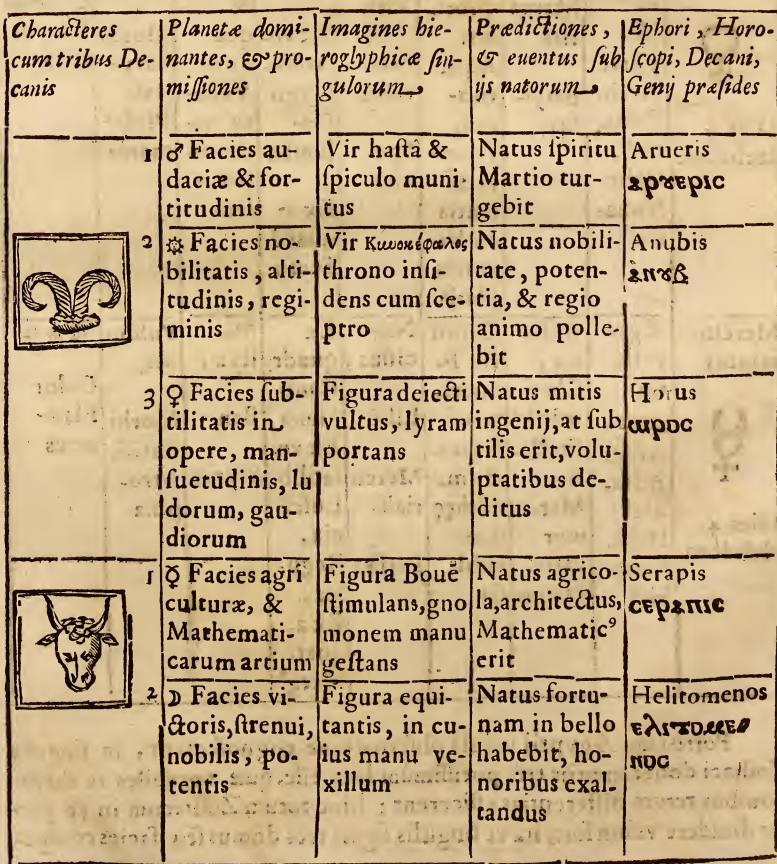 Characteres
cum tribus De-
canis
Planetæ domi-
nantes, & pro-
missiones
Imagines hie-
roglyphicæ sin-
gulorum
Prædictiones,
& euentus sub
ijs natorum
Ephori, Horo-
scopi, Decani,
Genij præsides
1
♂ Facies au-
daciæ & for-
titudinis
Vir hastâ &
spiculo muni
tus
Natus spiritu
Martio tur-
gebit
Arueris
ⲁⲣⲟⲩⲉⲣⲓⲥ
2
☼ Facies no-
bilitatis, alti-
tudinis, regi-
minis
Vir Κυνοκέφαλος
throno insi-
dens cum sce-
ptro
Natus nobili-
tate, poten-
tia, & regio
animo polle-
bit
Anubis
ⲁⲛⲟⲩⲃ
3
♀ Facies sub-
tilitatis in
opere, man-
suetudinis, lu
dorum, gau-
diorum
Figura deiecti
vultus, lyram
portans
Natus mitis
ingenij, at sub
tilis erit, volu-
ptatibus de-
ditus
Horus
ⲱⲣⲟⲥ
1
☿ Facies agri
culturæ, &
Mathemati-
carum artium
Figura Bouē
stimulans, gno
monem manu
gestans
Natus agrico-
la, architectus,
Mathematicꝰ
erit
Serapis
ⲥⲉⲣⲁⲡⲓⲥ
2
☽ Facies vi-
ctoris, strenui,
nobilis, po-
tentis
Figura equi-
tantis, in cu-
ius manu ve-
xillum
Natus fortu-
nam in bello
habebit, ho-
noribus exal-
tandus
Helitomenos
ⲉⲗⲓⲧⲟⲙⲉ
ⲛⲟⲥ